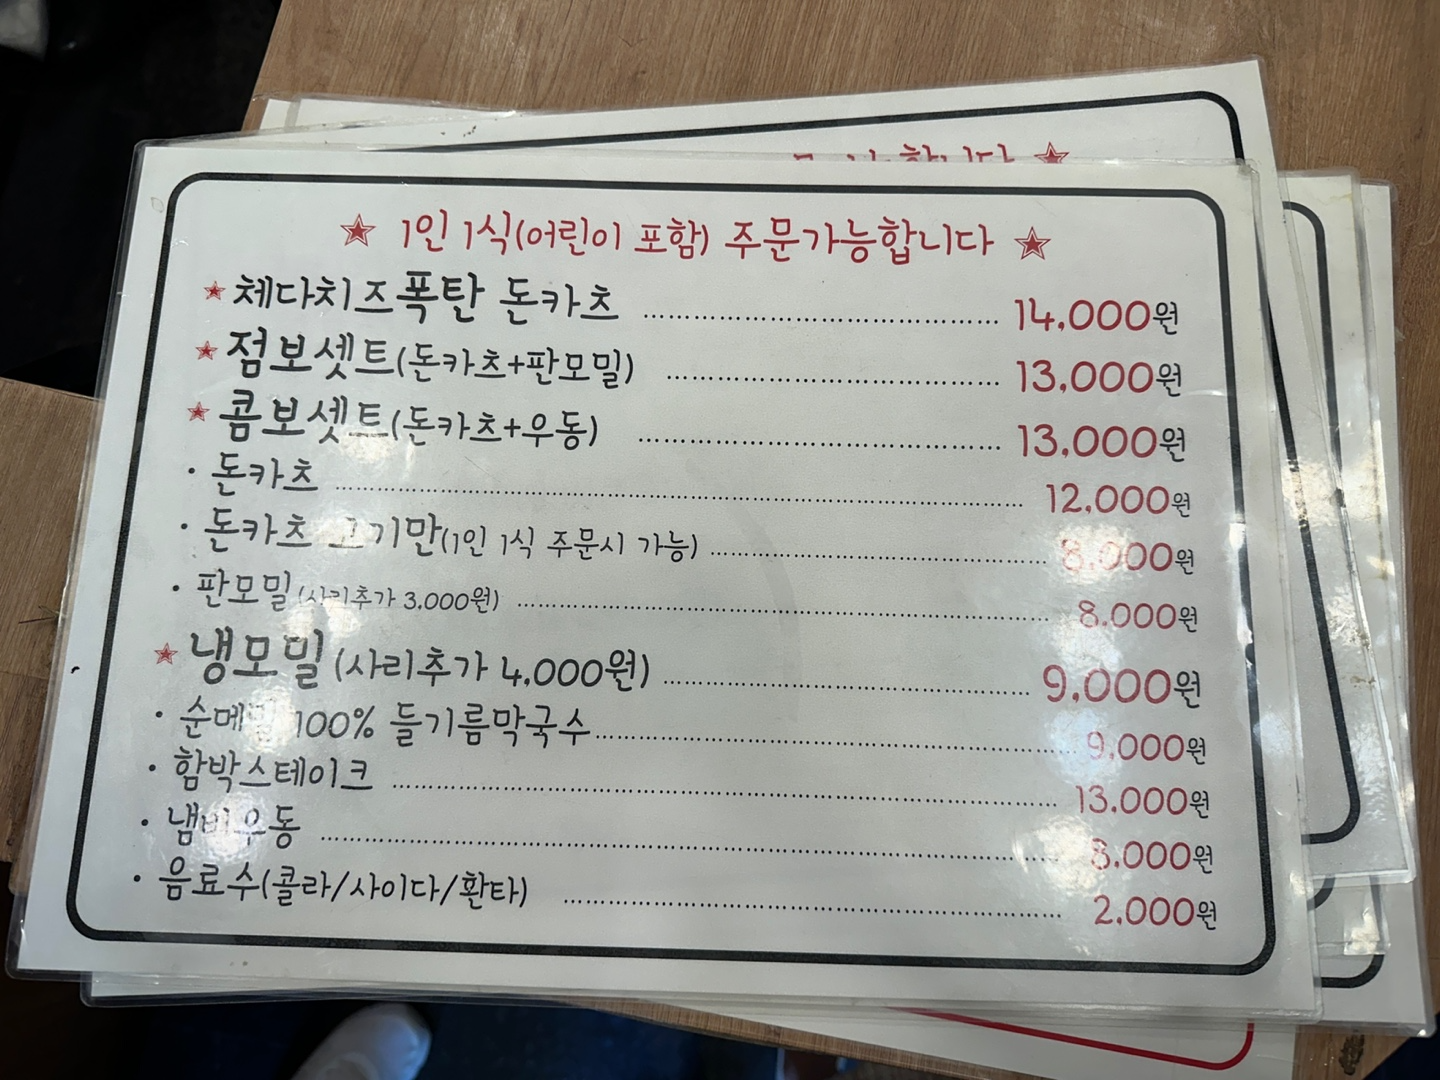 ★ 1인 1식(어린이 포함) 주문가능합니다 ★
★ 체다치즈폭탄 돈카츠 ........ 14,000원
★ 점보셋트(돈카츠+판모밀) ........ 13,000원
★ 콤보셋트(돈카츠+우동) ........ 13,000원
· 돈카츠 ........ 12,000원
· 돈카츠 고기만(1인 1식 주문시 가능) ........ 8,000원
· 판모밀(사리추가 3,000원) ........ 8,000원
★ 냉모밀(사리추가 4,000원) ........ 9,000원
· 순메밀 100% 들기름막국수 ........ 9,000원
· 함박스테이크 ........ 13,000원
· 냄비우동 ........ 8,000원
· 음료수(콜라/사이다/환타) ........ 2,000원